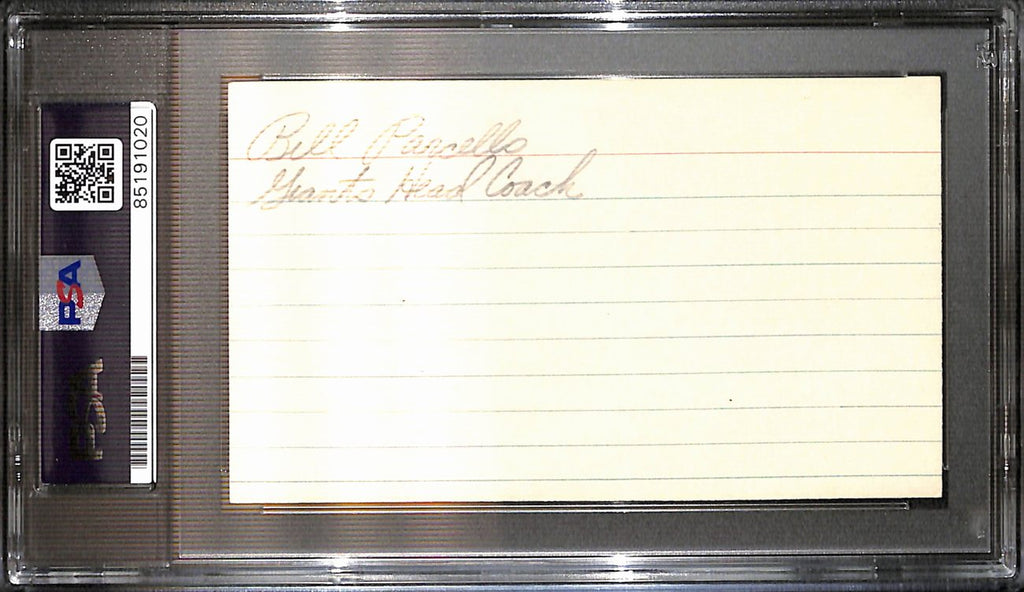 Bill Parcells
Giants Head Coach
85191020
PSA
PSA